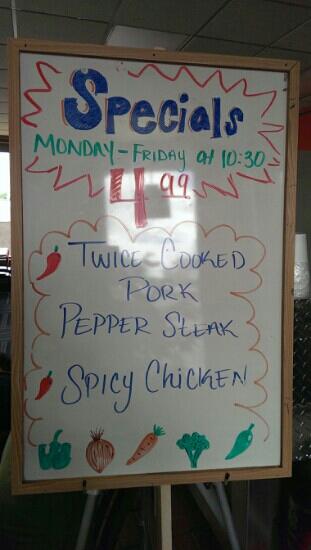 Specials
Monday - Friday at 10:30
4 99
Twice Cooked
Pork
Pepper Steak
Spicy Chicken